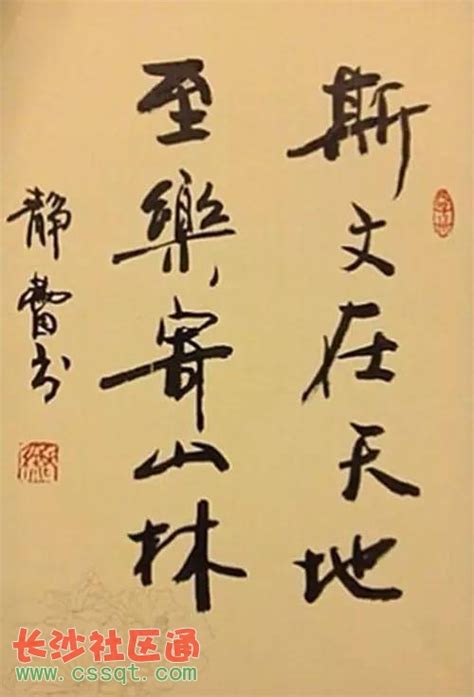 斯文在天地
至樂寄山林
静蕾书
长沙社区通
www.cssqt.com